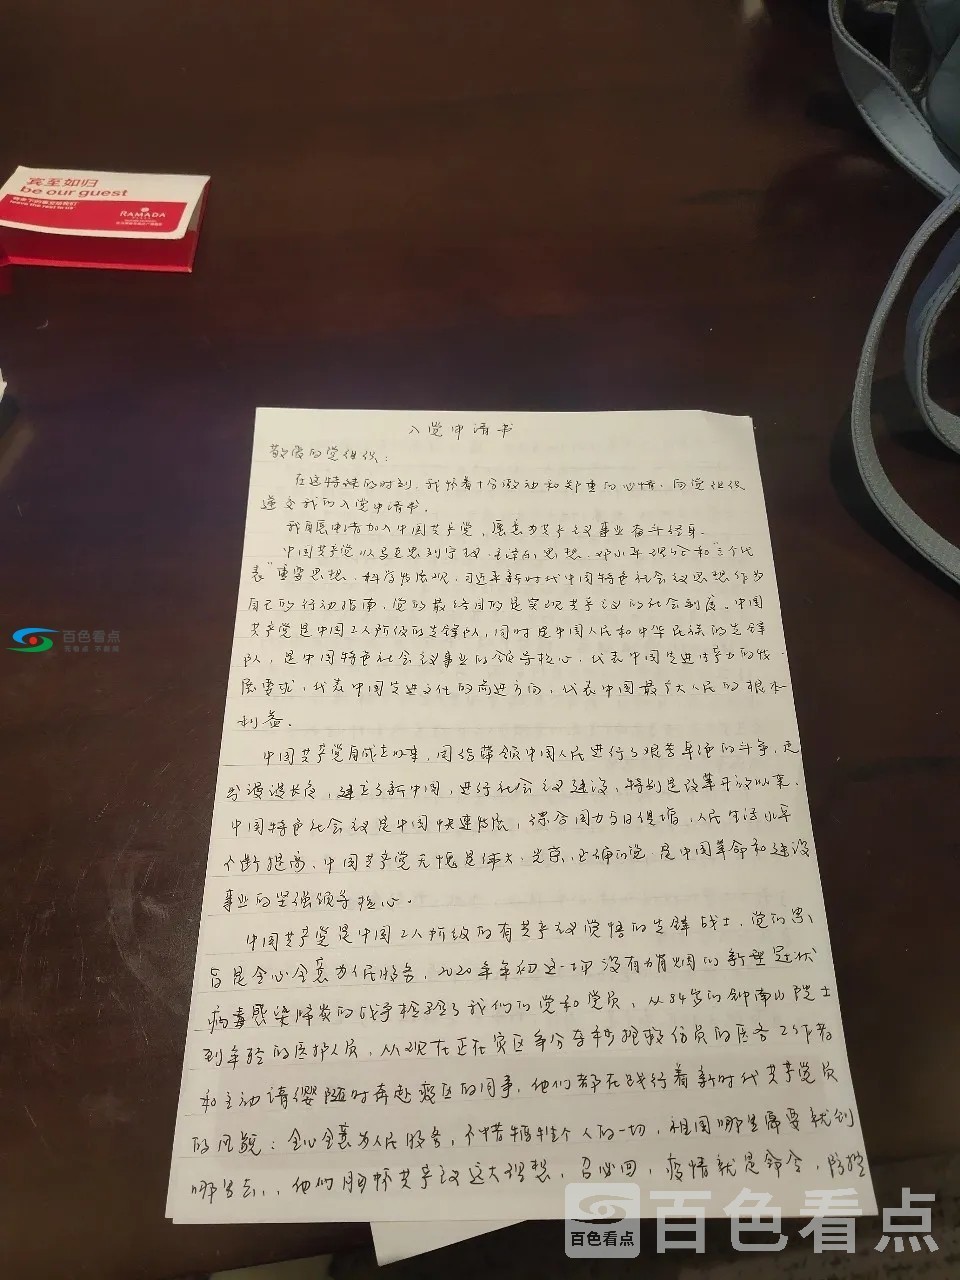 宾至如归
be our guest
leave the rest to us
RAMADA
百色看点
入党申请书
敬爱的党组织：
在这特殊的时刻，我怀着十分激动和郑重的心情，向党组织
递交我的入党申请书。
我自愿申请加入中国共产党，愿意为共产主义事业奋斗终身。
中国共产党以马克思列宁主义、毛泽东思想、邓小平理论和“三个代
表”重要思想、科学发展观、习近平新时代中国特色社会主义思想作为
自己的行动指南，党的最终目的是实现共产主义的社会制度。中国
共产党是中国工人阶级的先锋队，同时是中国人民和中华民族的先锋
队，是中国特色社会主义事业的领导核心，代表中国先进生产力的发
展要求，代表中国先进文化的前进方向，代表中国最广大人民的根本
利益。
中国共产党自成立以来，团结带领中国人民进行了艰苦卓绝的斗争，走
出漫漫长夜，建立了新中国，进行社会主义建设，特别是改革开放以来，
中国特色社会主义是中国快速发展，综合国力与日俱增，人民生活水平
不断提高，中国共产党无愧是伟大、光荣、正确的党，是中国革命和建设
事业的坚强领导核心。
中国共产党是中国工人阶级的有共产主义觉悟的先锋战士，党的宗
旨是全心全意为人民服务，2020年年初这一场没有硝烟的新型冠状
病毒感染肺炎的战争检验了我们的党和党员，从84岁的钟南山院士
到年轻的医护人员，从现在正在灾区争分夺秒抢救伤员的医务工作者
和主动请缨随时奔赴疫区的同事，他们都在践行着新时代共产党员
的风貌：全心全意为人民服务，不惜牺牲个人的一切，祖国哪里需要就到
哪里去，他们胸怀共产主义远大理想，召必回，疫情就是命令，防控
百色看点
百色看点